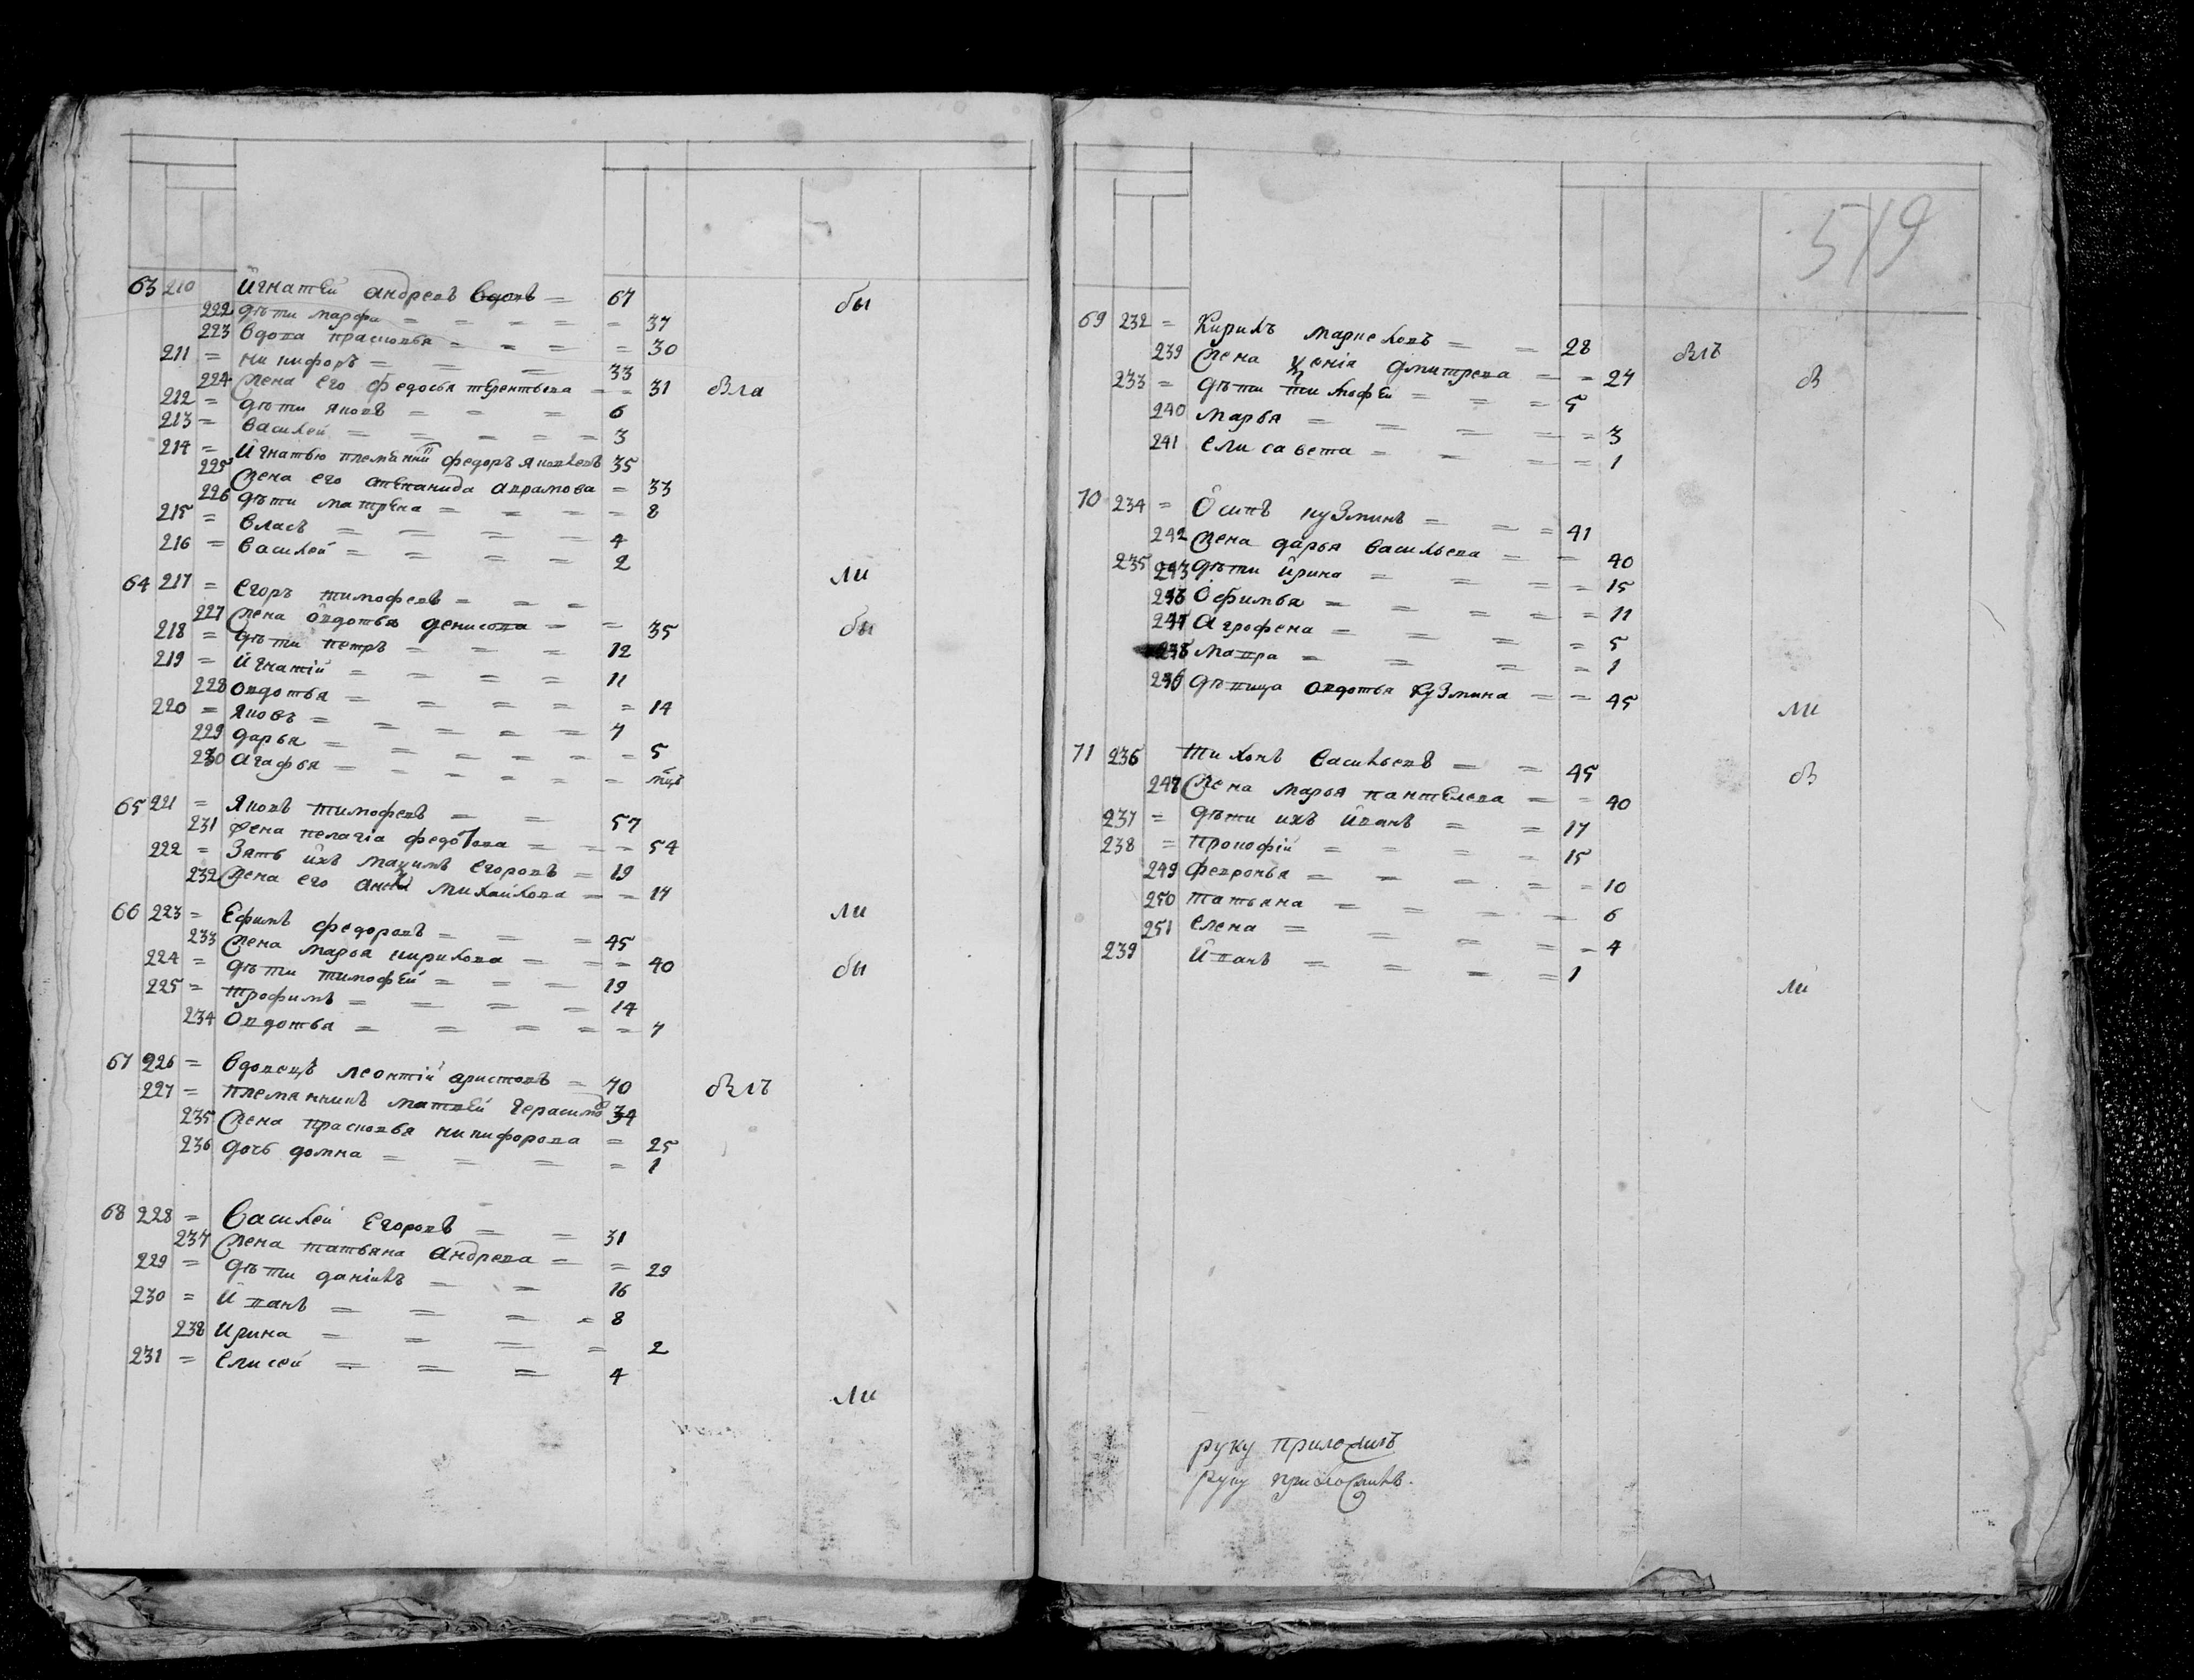 519
63 210 Игнатей андреевъ вдовъ = 67 бы
222 дѣти марфа = = = = = 37
223 вдова прасковья = = = = 30
211 = никифоръ = = = 33
224 жена его федосья терентьева = = 31 бѣла
212 = дѣти яковъ = = = 6
213 = василей = = = = = 3
214 = Игнатью племянни федоръ яковлевъ 35
225 жена его степанида аврамова = 33
226 дѣти матрена = = = = 8
215 = власъ = = = = 4
216 = василей = = = = 2
ли
64 217 = Егоръ тимофеевъ = = =
227 жена овдотья денисова = = 35 бы
218 = дѣти петръ = = = 12
219 = Игнатій = = = = 11
228 овдотья = = = = 14
220 = яковъ = = = = = 7
229 дарья = = = = = 5
230 агафья = = = = = = мцъ
65 221 = яковъ тимофеевъ = = 57
231 жена пелагіа федотова = = = 54
222 = зять ихъ маѯимъ егоровъ = 19
232 жена его анна михайлова = = 17
ли
66 223 = Ефимъ федоровъ = = = 45
233 жена марья кирилова = = = 40
224 = дѣти тимофей = = = 19 бы
225 = трофимъ = = = = 14
234 овдотья = = = = = 7
67 226 = вдовецъ леонтій аристовъ = 70 бѣлъ
227 = племянникъ матвей герасимо 34
235 жена прасковья никифорова = 25
236 дочь домна = = = = 1
68 228 = василей егоровъ = = 31
237 жена татьяна андреева = = 29
229 = дѣти даніилъ = = 16
230 = Иванъ = = = = 8
238 ирина = = = = 2
231 = елисей = = = 4
ли
69 232 = Кирилъ маркеловъ = = 28 бѣлъ
239 жена ѯенія дмитрева = = 24 бѣ
233 = дѣти тимофей = = = 5
240 марья = = = = = 3
241 елисавета = = = = 1
70 234 = Осипъ кузминъ = = = 41
242 жена дарья васильева = = 40
235 243 дѣти ирина = = = = 15
Офимья = = = = = 11
Агрофена = = = = 5
мавра = = = = 1
246 дѣвица овдотья кузмина = = 45
ли
71 236 тихонъ васильевъ = = 45
248 жена марья пантелеева = = 40 бѣ
237 = дѣти ихъ иванъ = = 17
238 = прокофій = = = = 15
249 февронья = = = = = 10
250 татьяна = = = = 6
251 елена = = = = = 4
239 иванъ = = = = 1
ли
руку приложилъ
руку приложилъ.